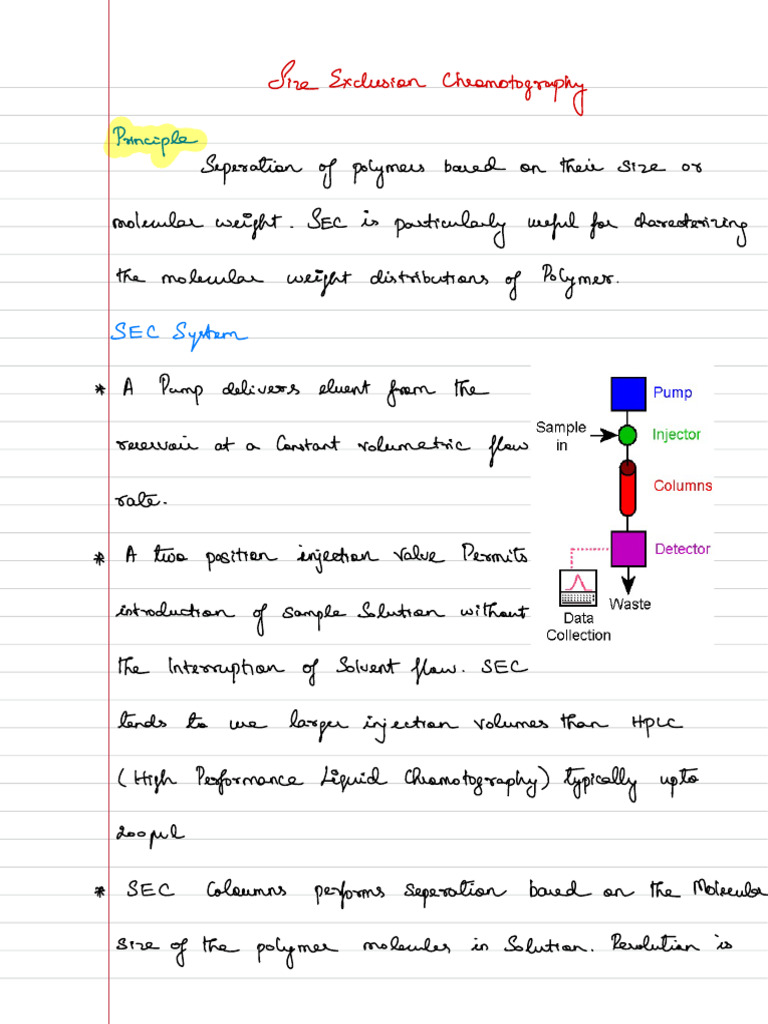 Size Exclusion Chromotography
Principle
Seperation of polymers based on their size or
molecular weight. SEC is particularly useful for charecterizing
the molecular weight distributions of Polymer.
SEC System
* A Pump delivers eluent from the
reservoir at a Constant volumetric flow
rate.
Pump
Sample in
Injector
Columns
Detector
Waste
Data Collection
* A two position injection valve Permits
introduction of sample Solution without
the Interruption of Solvent flow. SEC
tends to use larger injection volumes than HPLC
(High Performance Liquid Chromotography) typically upto
200μl
* SEC Coloumns performs seperation based on the Molecular
size of the polymer molecules in Solution. Resolution is